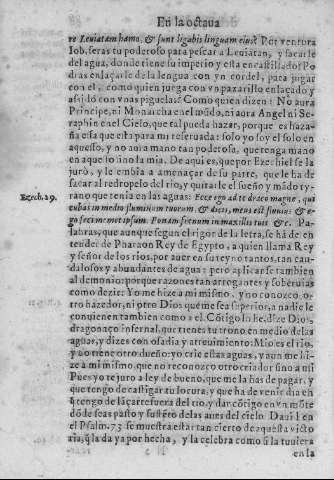 En la octaua
re Leuiatam hamo, & funi ligabis linguam eius? Por ventura
Iob, seras tu poderoso para pescar a Leuiatan, y sacarle
del agua, donde tiene su imperio y esta encastillado? Po
dras enlaçarle de la lengua con vn cordel, para jugar
con el, como quien juega con vn paxarillo enlaçado y
asido con vnas piguelas? Como quien dizen: No aura
Principe, ni Monarcha en el mũdo, ni aura Angel ni Se-
raphin en el Cielo, que tal pueda hazar, porque es haza-
ña essa que esta para mi reseruada: solo yo soy el podero
so aquello, y no aura mano tan poderosa, que tenga mano
en aquello sino la mia. De aqui es, que por Ezechiel se la
juró, y le embia a amenaçar de su parte, que le ha de
sacar al redropelo del rio, y quitarle el sueño y mãdo ty-
rano que tenia en las aguas:
Ezech. 29.
Ecce ego ad te draco magne, qui
cubas in medio fluminum tuorum, & dicis, meus est fluuius & e-
go feci memet ipsum. Ponam frenum in maxillis tuis &c. Pa-
labras, que aunque segun el rigor de la letra, se hã de en
tender de Pharaon Rey de Egypto, a quien llama Rey
y señor de los rios, por auer en su reyno tantos, tan cau-
dalosos y abundantes de agua: pero aplicanse tambien
al demonio: porque razones tan arrogantes y soberuias
como dezir: Yo me hize a mi mismo, y no conozco o-
tro hazedor, ni otro Dios que me sea superior, a nadie le
conuienen tambien como a el. Cõtigo lo he, dize Dios,
dragonaço infernal, que tienes tu trono en medio de las
aguas, y dizes con osadia y atreuimiento: Mio es el rio,
y no tiene otro dueño: yo crie estas aguas, y aun me hi-
ze a mi mismo, que no reconozco otro criador sino a mi
Pues yo te juro a ley de bueno, que me la has de pagar, y
que tengo de castigar tu locura, y que ha de venir dia en
q̃ tengo de sacarte fuera del rio, y dar cõtigo en vn mõte
dõde seas pasto y sustẽto de las aues del cielo. Dauid en
el Psalm. 73 se muestra estar tan cierto de aquesta victo
ria, q̃ la da ya por hecha, y la celebra como si la tuuiera
en la